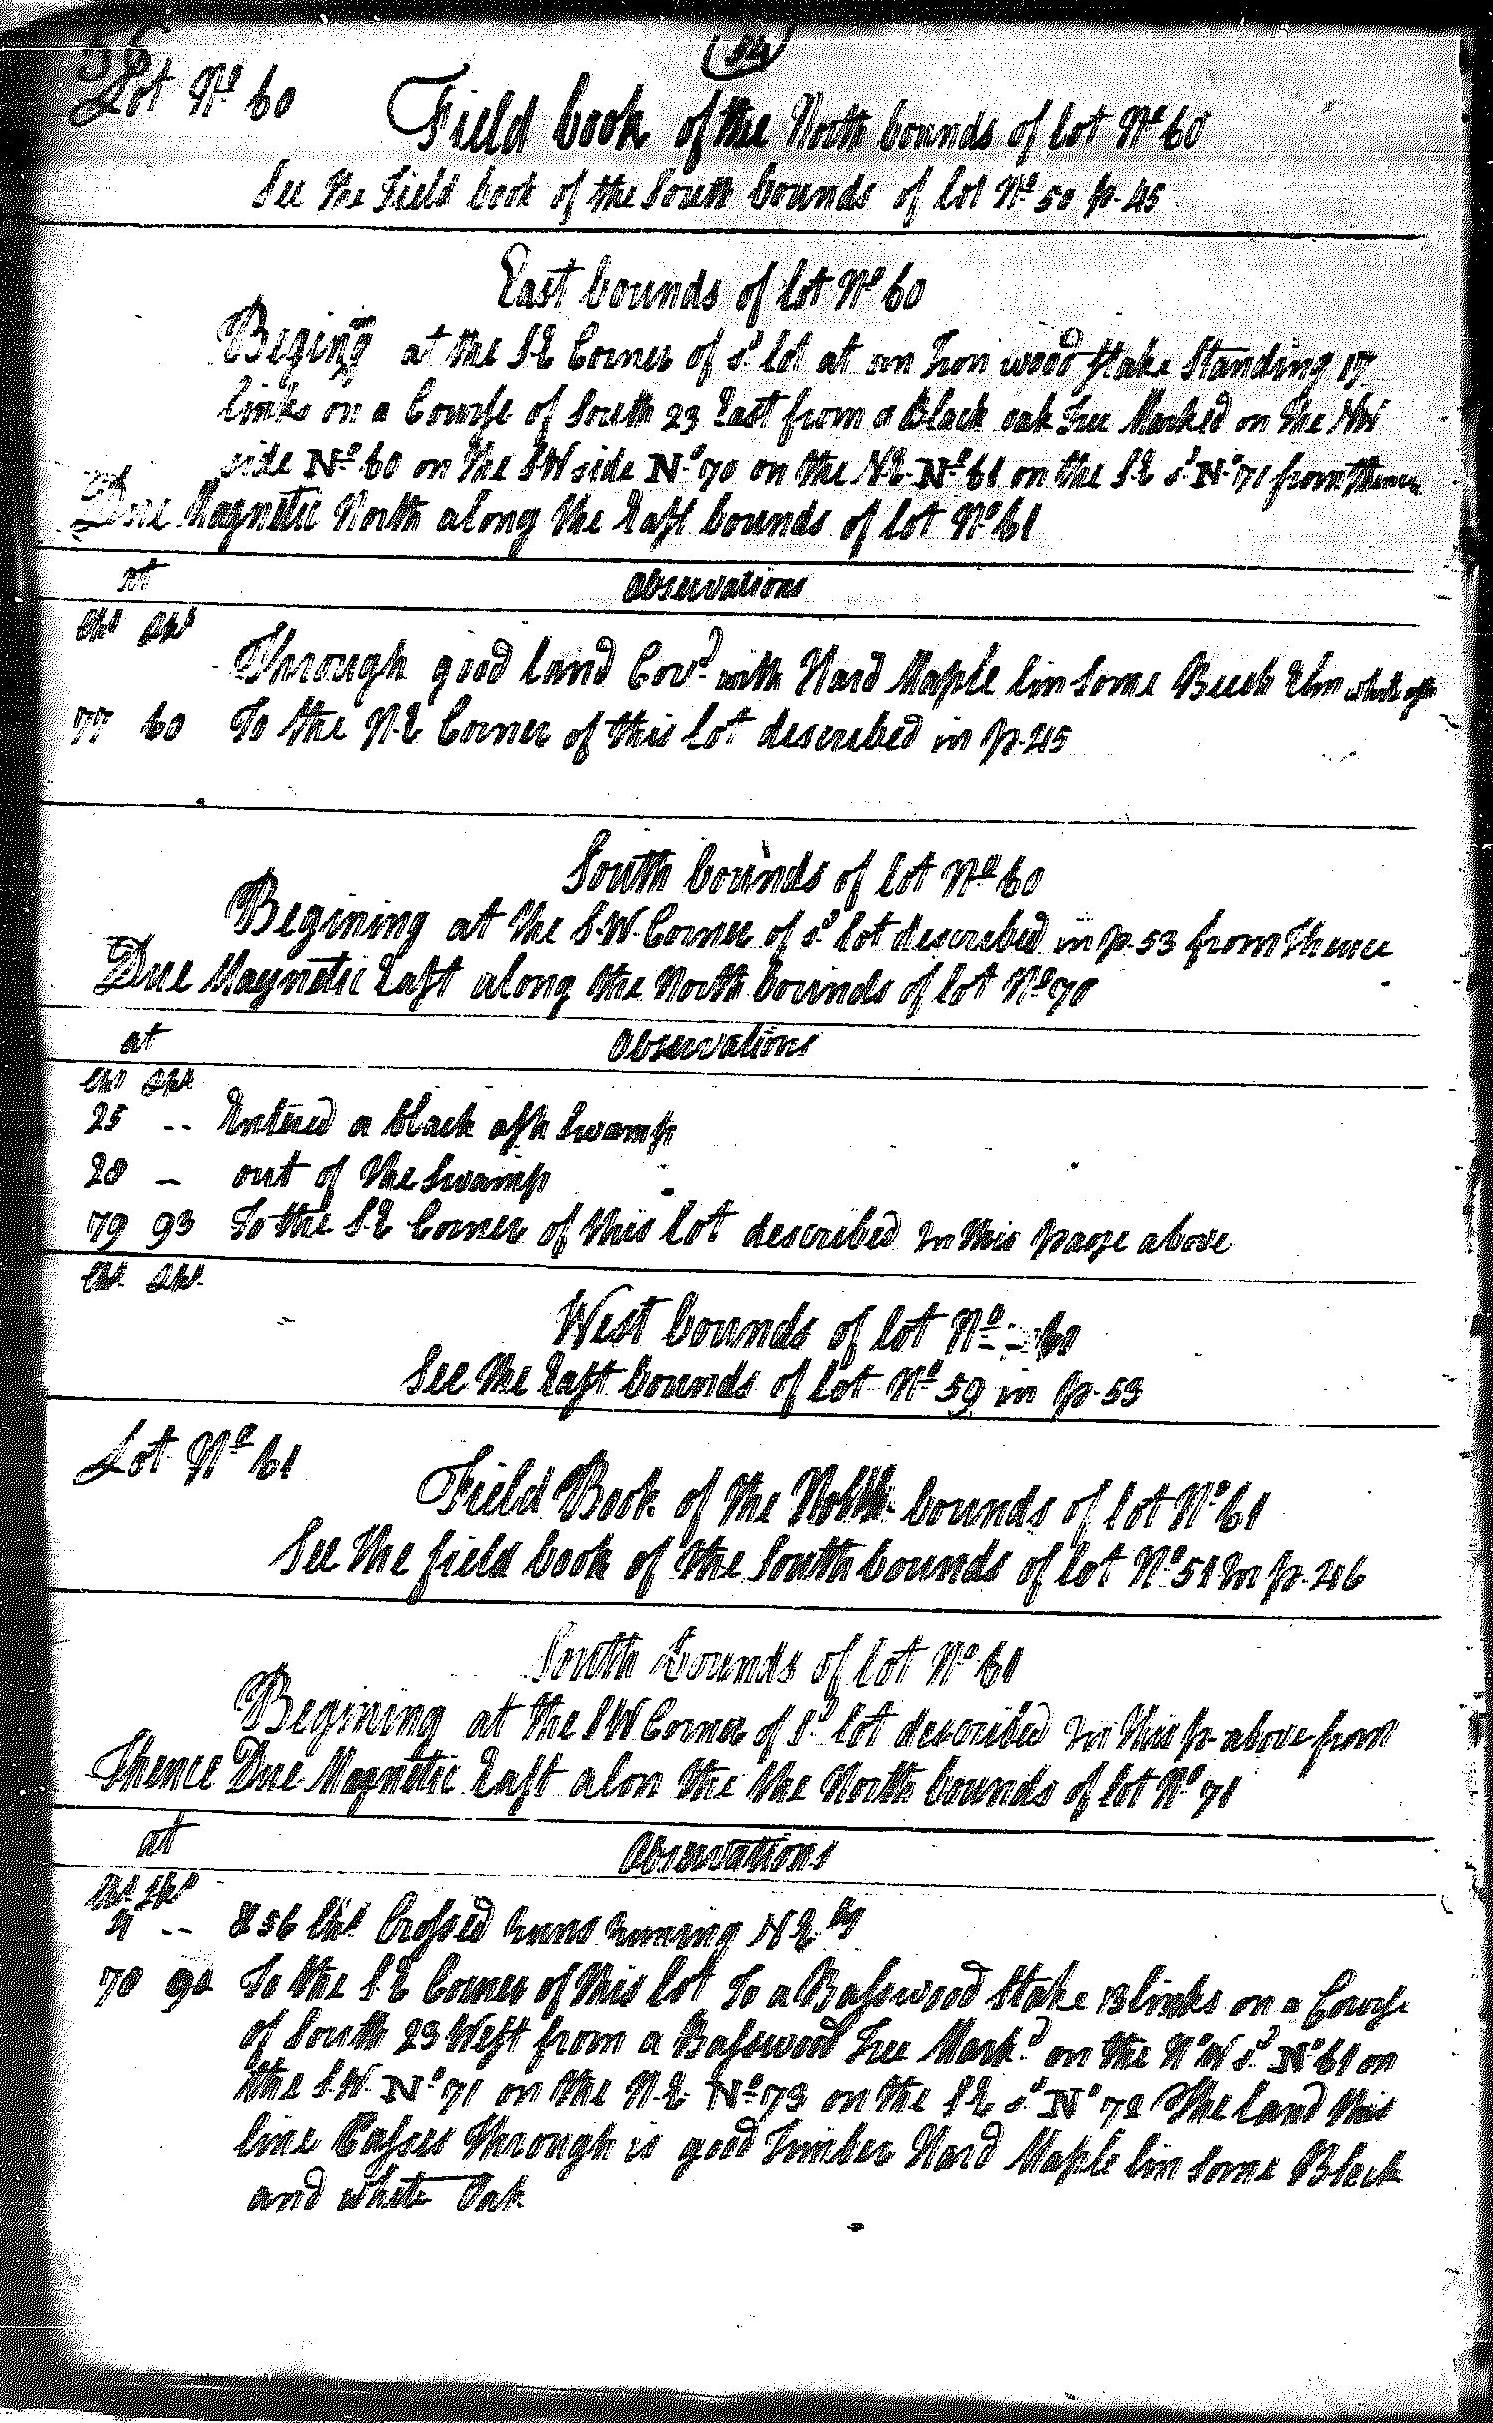 54
Lot Nº 60
Field book of the North bounds of lot Nº 60
See the Field book of the South bounds of lot Nº 50 p. 45
East bounds of lot Nº 60
Begining at the S.E Corner of sd lot at an Iron wood stake Standing 17
links on a Course of South 23 East from a Black oak tree Marked on the NW
side Nº 60 on the SW side Nº 70 on the N.E. Nº 61 on the S.E sd Nº 71 from thence
Due Magnetic North along the East bounds of lot Nº 61
at Observations
Chs Lks
Through good land Covd with Hard Maple lin some Beech Elm white
77 60 To the N.E Corner of this lot described in p. 45
South bounds of lot Nº 60
Begining at the S.W. Corner of sd lot described in p. 53 from Thence
Due Magnetic East along the North bounds of lot Nº 70
at Observations
Chs Lks
25 .. Entered a black ash Swamp
28 – out of the Swamp
79 93 To the S.E Corner of this lot described In this page above
Chs. Lks.
West bounds of lot Nº 60
See the East bounds of lot Nº 59 in p. 53
Lot Nº 61
Field Book of the North bounds of lot Nº 61
See the field book of the South bounds of lot Nº 51 In p. 46
South bounds of lot Nº 61
Begining at the SW Corner of sd lot described In this p. above from
Thence Due Magnetic East alon the the North bounds of lot Nº 71
at Observations
Chs Lks
.. & 56 Chs Crossed runs running N E ly
78 To the S.E Corner of this lot To a Basswood Stake 13 links on a Course
of South 23 West from a Basswood Tree Markd on the N W sd Nº 61 on
the S.W. Nº 71 on the N.E. Nº 73 on the S E sd Nº 72 The land this
line Passes through is good Timber Hard Maple lin some Black
and white Oak